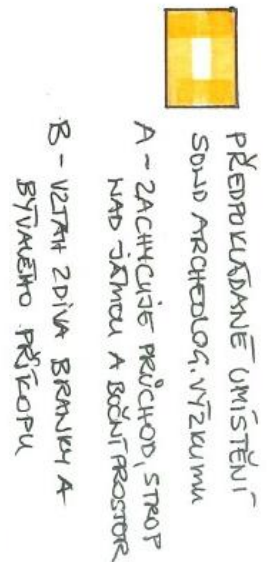 PŘEDPOKLÁDANÉ UMÍSTĚNÍ
SOND ARCHEOLOG. VÝZKUMU
A - ZACHYCUJE PRŮCHOD, STROP
NAD JÁMOU A BOČNÍ PROSTOR
B - VZTAH ZDIVA BRANKY A
BÝVALÉHO PŘÍKOPU